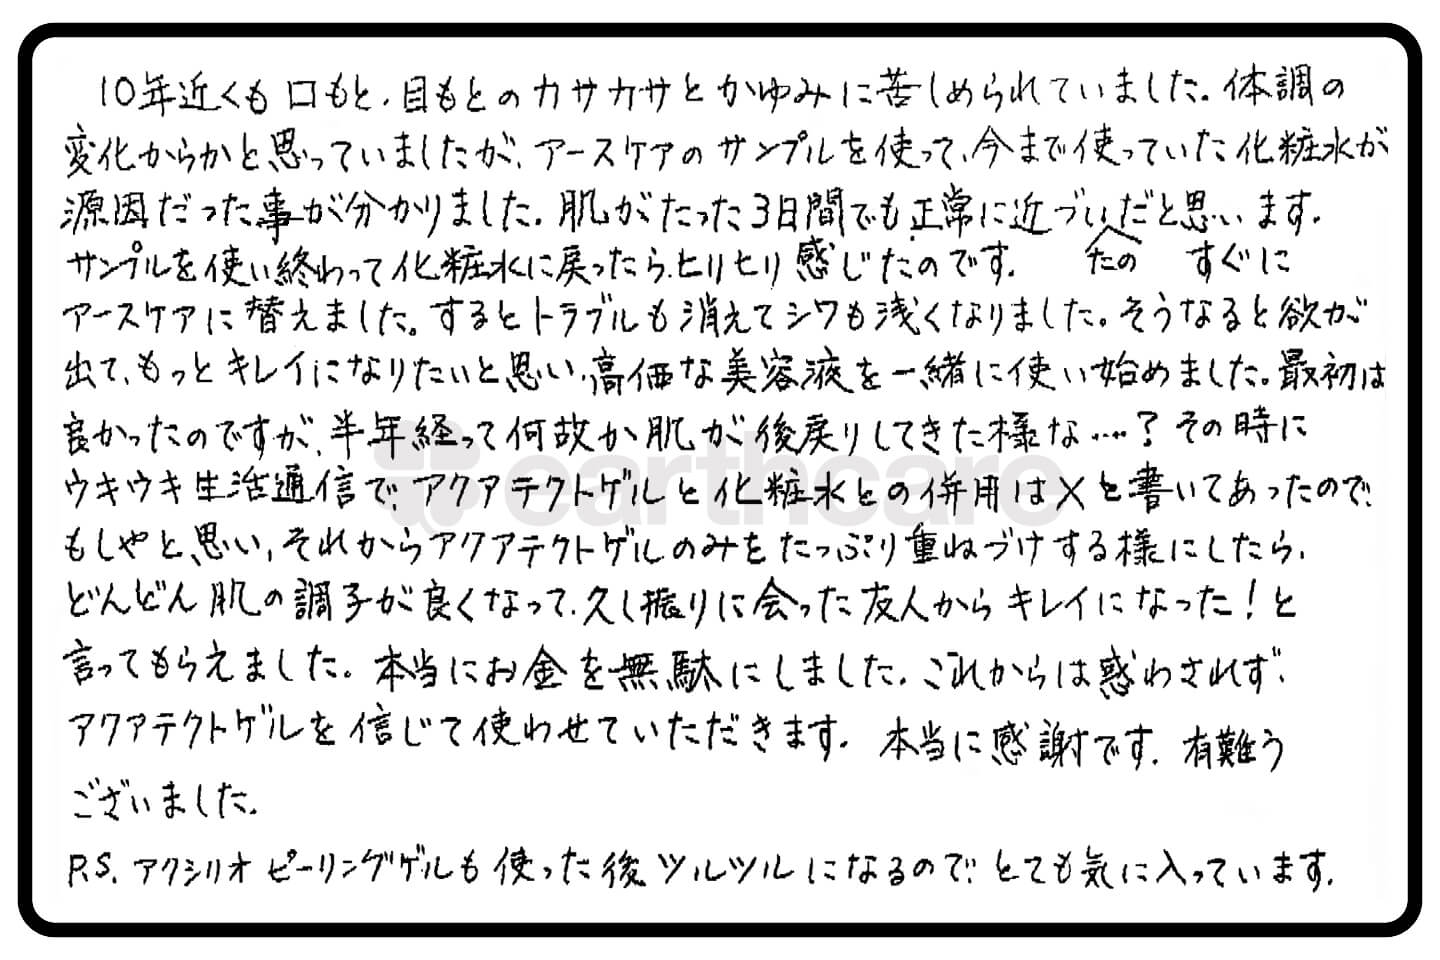 10年近くも口もと、目もとのカサカサとかゆみに苦しめられていました。体調の
変化からかと思っていましたが、アースケアのサンプルを使って、今まで使っていた化粧水が
源因だった事が分かりました。肌がたった3日間でも正常に近づいたのだと思います。
サンプルを使い終わって化粧水に戻ったら、ヒリヒリ感じたのです。すぐに
アースケアに替えました。するとトラブルも消えてシワも浅くなりました。そうなると欲が
出て、もっとキレイになりたいと思い、高価な美容液を一緒に使い始めました。最初は
良かったのですが、半年経って何故か肌が後戻りしてきた様な……?その時に
ウキウキ生活通信で、アクアテクトゲルと化粧水との併用は×と書いてあったので、
もしやと思い、それからアクアテクトゲルのみをたっぷり重ねづけする様にしたら、
どんどん肌の調子が良くなって、久し振りに会った友人からキレイになった!と
言ってもらえました。本当にお金を無駄にしました。これからは惑わされず、
アクアテクトゲルを信じて使わせていただきます。本当に感謝です。有難う
ございました。
P.S. アクシリオピーリングゲルも使った後ツルツルになるので、とても気に入っています。
earthcare